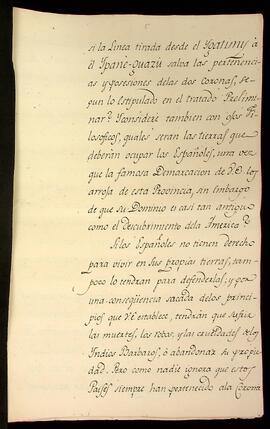 si la Linea tirada desde el Ygatimi à
el Ypanè-guazù salva las pertenencias
y posesiones delas dos coronas, se-
gun lo estipulado en el tratado Prelimi-
nar? Considere tambien con ojos Fi-
losoficos, quales seràn las tierras que
deberàn ocupar los Españoles, una vez
que la famosa Demarcacion de V.E. los
arroja de esta Provincia, sin embargo
de que su Dominio es casi tan antiguo
como el descubrimiento dela America?
Si los Españoles no tienen derecho
para vivir en sus propias tierras, tam-
poco lo tendràn para defenderlas; y por
una conseqüencia sacada delos princi-
pios que V.E. establece, tendràn que sufrir
las muertes, los robos, y las crueldades delos
Indios Barbaros, ò abandonar su propie-
dad. Pero como nadie ignora que estos
Paìses siempre han pertenecido ala Corona